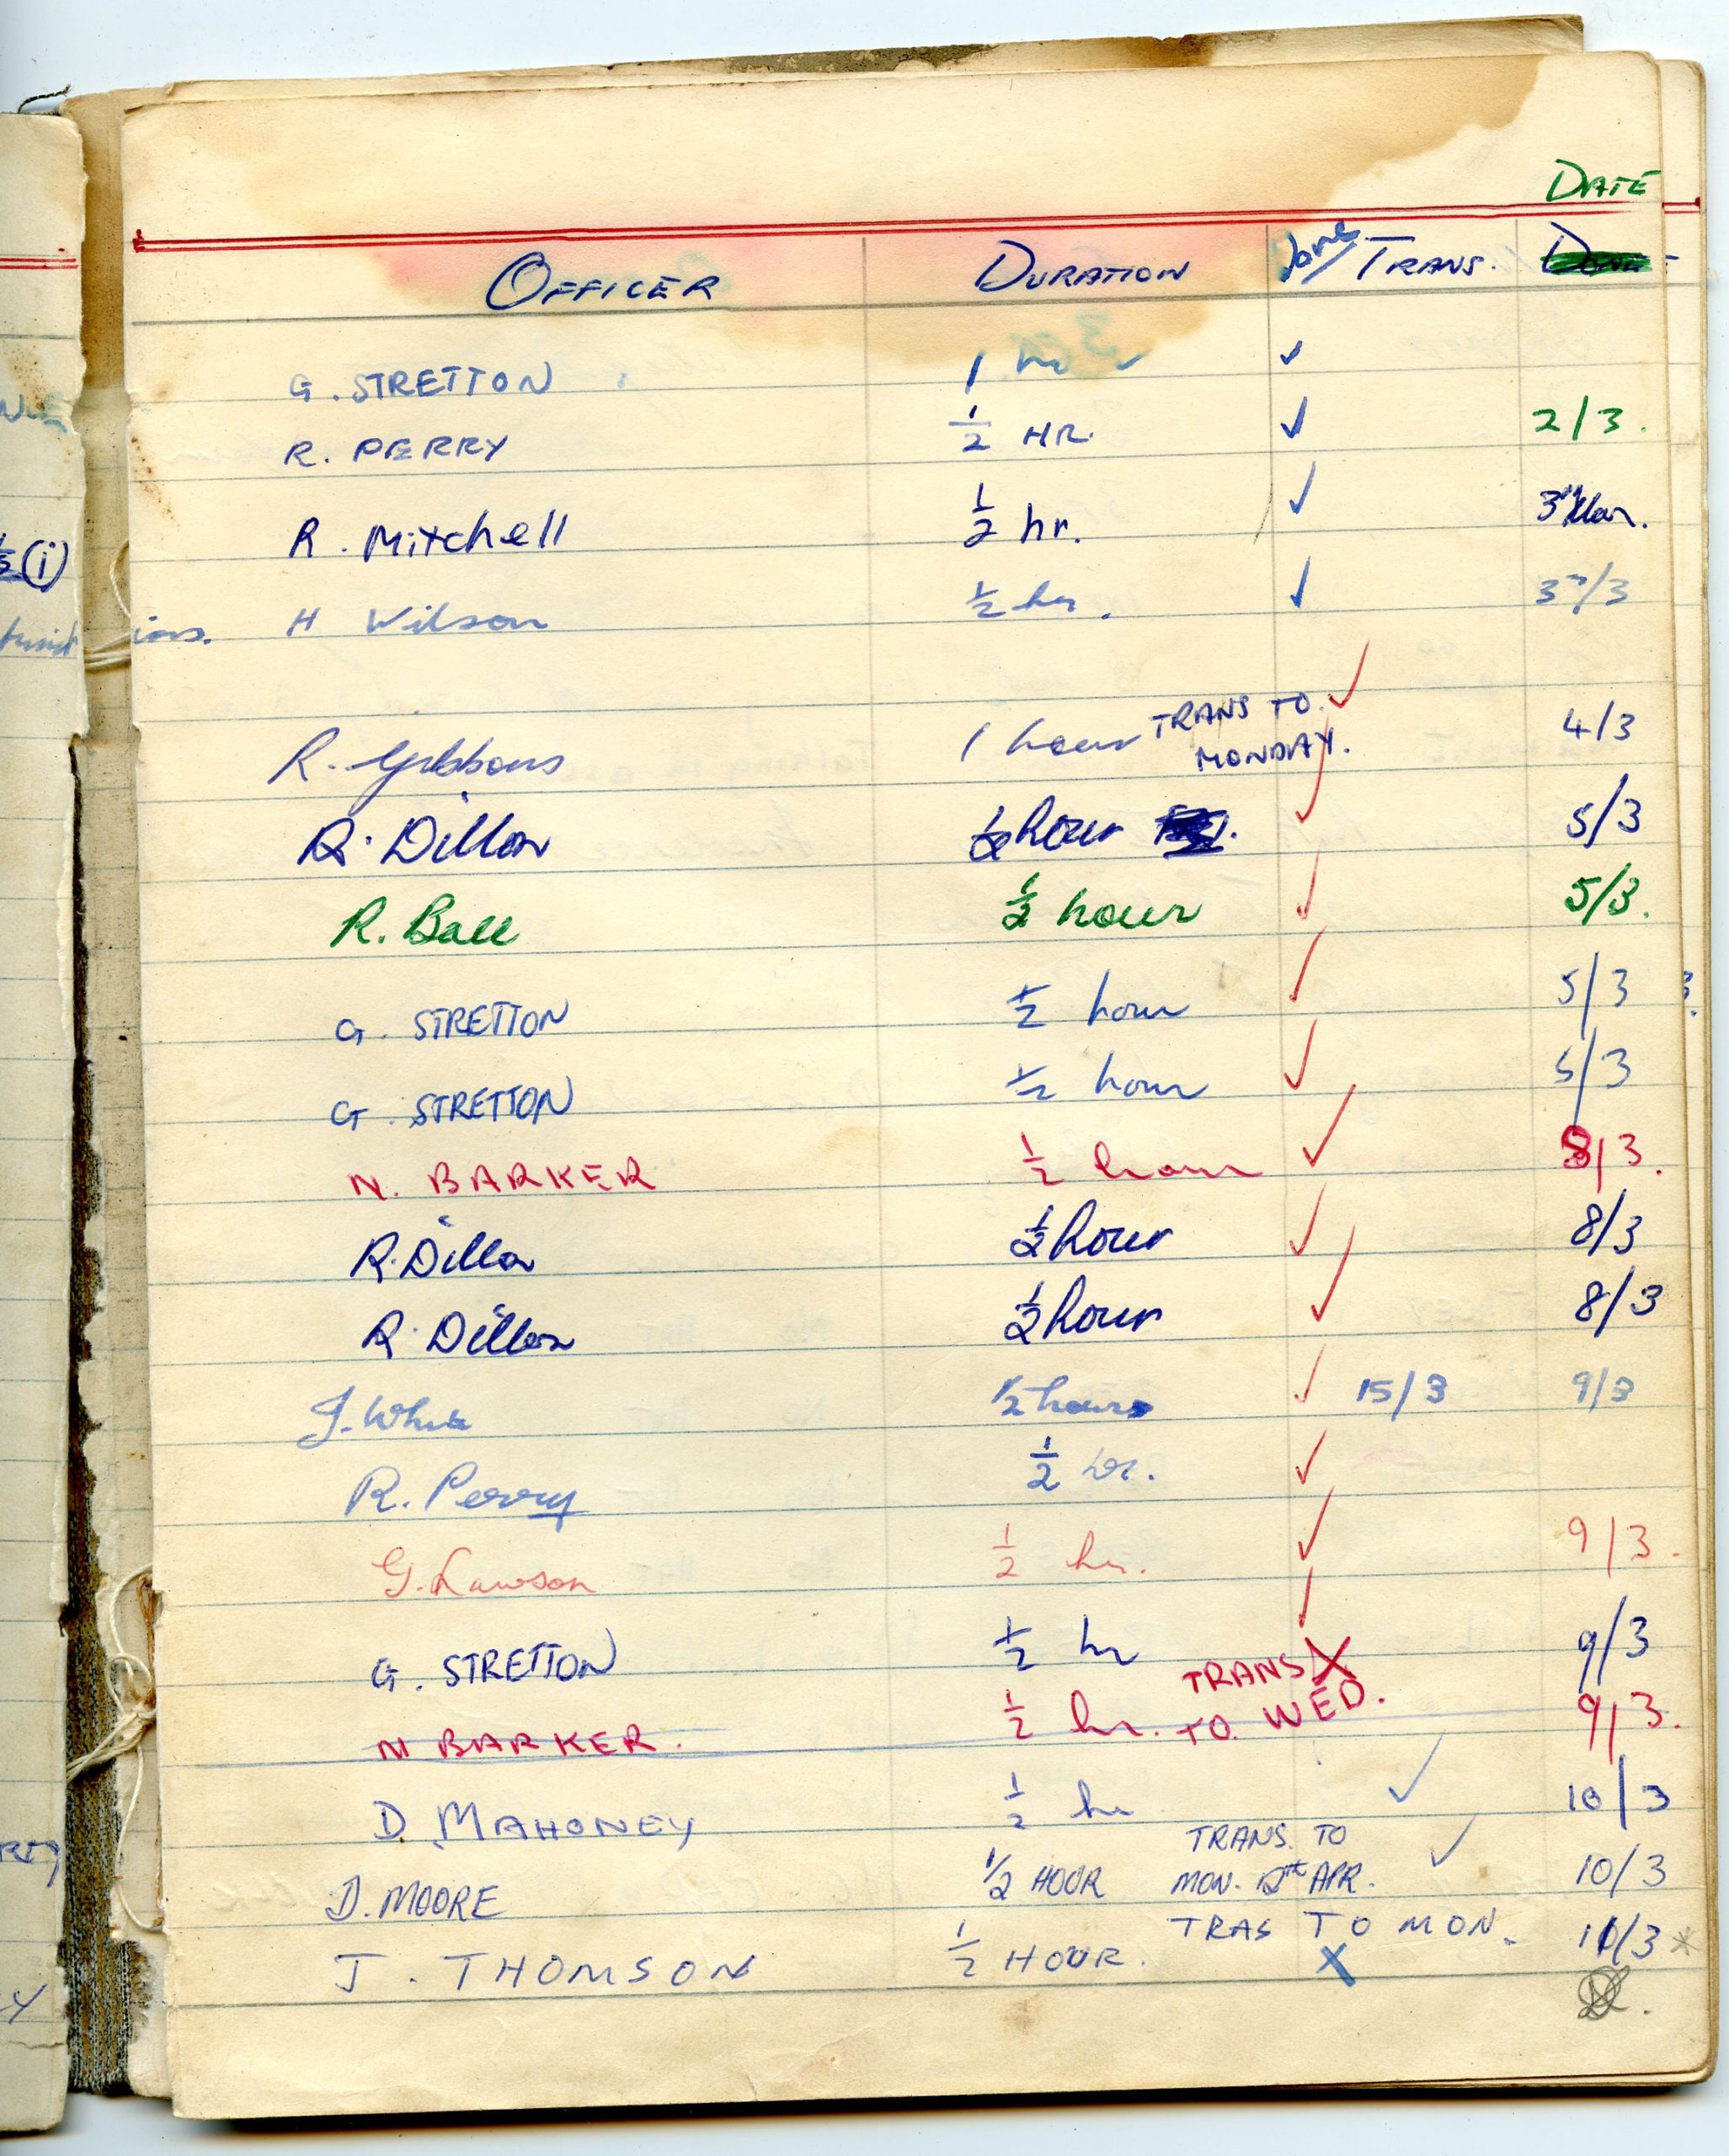 DATE
OFFICER DURATION Done/ TRANS.
G. STRETTON 1 hr ✓
R. PERRY ½ HR. ✓ 2/3.
R. Mitchell ½ hr. ✓ 3rd Mar.
(i)
ions. H Wilson ½ hr. ✓ 3rd/3
TRANS TO ✓
R. Gibbons 1 hour MONDAY. 4/3
R. Dillon ½ hour ✓ 5/3
R. Ball ½ hour ✓ 5/3.
G. STRETTON ½ hour ✓ 5/3
G. STRETTON ½ hour ✓ 5/3
N. BARKER ½ hour ✓ 8/3.
R. Dillon ½ hour ✓ 8/3
R. Dillon ½ hour ✓ 8/3
J. White ½ hour ✓ 15/3 9/3
R. Perry ½ hr. ✓
G. Lawson ½ hr. ✓ 9/3.
G. STRETTON ½ hr ✓ 9/3
TRANS X
N BARKER. ½ hr. TO WED. 9/3.
D. MAHONEY ½ hr ✓ 10/3
TRANS. TO ✓
D. MOORE ½ HOUR MON. APR. 10/3
TRAS TO MON.
J. THOMSON ½ HOUR. X 11/3 *